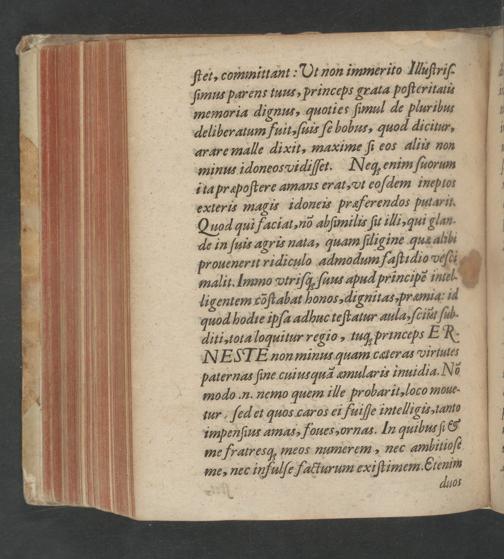 ſtet, committant: Vt non immerito Illuſtriſ-
ſimus parens tuus, princeps grata poſteritatis
memoria dignus, quoties ſimul de pluribus
deliberatum fuit, ſuis ſe bobus, quod dicitur,
arare malle dixit, maxime ſi eos aliis non
minus idoneos vidiſſet. Neq; enim ſuorum
ita præpoſtere amans erat, vt eoſdem ineptos
exteris magis idoneis præferendos putarit.
Quod qui faciat, nõ abſimilis ſit illi, qui glan-
de in ſuis agris nata, quam ſiligine quæ alibi
prouenerit ridiculo admodum faſtidio veſci
malit. Immo vtriſq; ſuus apud principẽ intel-
ligentem cõſtabat honos, dignitas, præmia: id
quod hodie ipſa adhuc teſtatur aula, ſciũt ſub-
diti, tota loquitur regio, tuq; princeps ER-
NESTE non minus quam cæteras virtutes
paternas ſine cuiusquã æmularis inuidia. Nõ
modo .n. nemo quem ille probarit, loco moue-
tur, ſed et quos caros ei fuiſſe intelligis, tanto
impenſius amas, foues, ornas. In quibus ſi &
me fratreſq; meos numerem, nec ambitioſe
me, nec inſulſe facturum exiſtimem. Etenim
duos